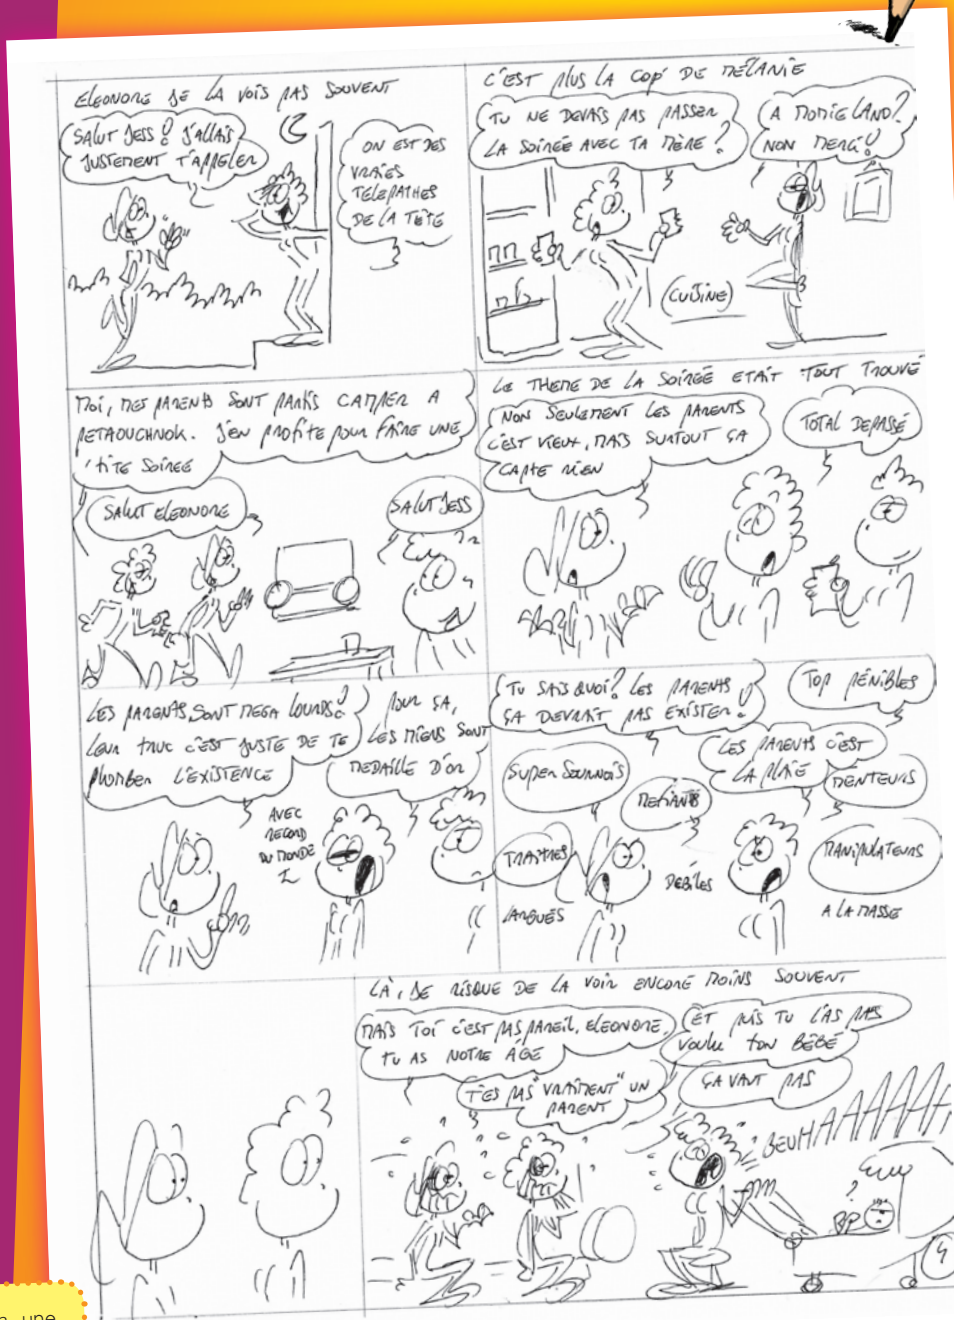 ELEONORE JE LA VOIS PAS SOUVENT
SALUT JESS ! J'ALLAIS
JUSTEMENT T'APPELER
ON EST DES
VRAIES
TELEPATHES
DE LA TÊTE
C'EST PLUS LA COP' DE MÉLANIE
TU NE DEVAIS PAS PASSER
LA SOIRÉE AVEC TA MÈRE ?
A MOMIE LAND ?
NON MERCI !
(CUISINE)
MOI, MES PARENTS SONT PARTIS CAMPER A
PETAOUCHNOK. J'EN PROFITE POUR FAIRE UNE
'TITE SOIREE
SALUT ELEONORE
SALUT JESS
LE THEME DE LA SOIRÉE ETAIT TOUT TROUVÉ
NON SEULEMENT LES PARENTS
C'EST VIEUX, MAIS SURTOUT ÇA
CAPTE RIEN
TOTAL DEPASSÉ
LES PARENTS, SONT MEGA LOURDS !
LEUR TRUC C'EST JUSTE DE TE
PLOMBER L'EXISTENCE
POUR ÇA,
LES MIENS SONT
MEDAILLE D'OR
AVEC
RECORD
DU MONDE
TU SAIS QUOI ? LES PARENTS
ÇA DEVRAIT PAS EXISTER !
TOP PÉNIBLES
LES PARENTS C'EST
LA PLAIE
SUPER SOURNOIS
MEFIANTS
MENTEURS
TRAITRES
DEBILES
MANIPULATEURS
LARGUÉS
A LA MASSE
LÀ, JE RISQUE DE LA VOIR ENCORE MOINS SOUVENT
MAIS TOI C'EST PAS PAREIL, ELEONORE.
TU AS NOTRE ÂGE
ET PUIS TU L'AS PAS
VOULU TON BÉBÉ
T'ES PAS "VRAIMENT" UN
PARENT
ÇA VAUT PAS
BEUHAAAAAAAA
?
une